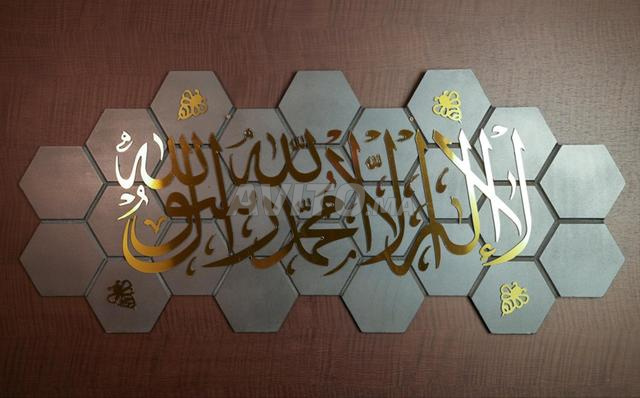 لا إله إلا الله محمد رسول الله
AVITO.MA